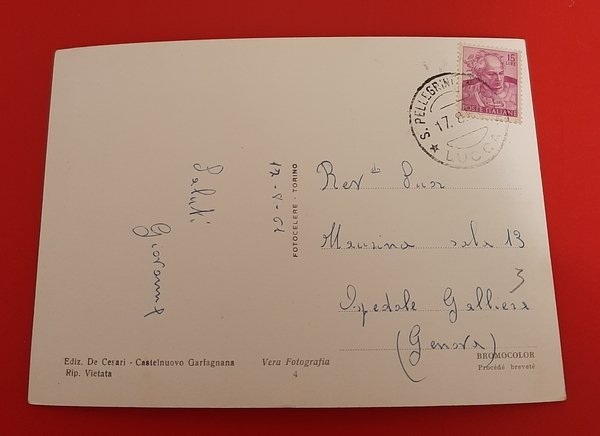 15
LIRE
POSTE ITALIANE
S. PELLEGRIN
17. 8.
LUCCA
17-8-62
Saluti
Giovanna
FOTOCELERE - TORINO
Rev da Suor
Maurina sala 13
3
Ospedale Galliera
(Genova)
Ediz. De Cesari - Castelnuovo Garfagnana
Rip. Vietata
Vera Fotografia
4
BROMOCOLOR
Procédé breveté